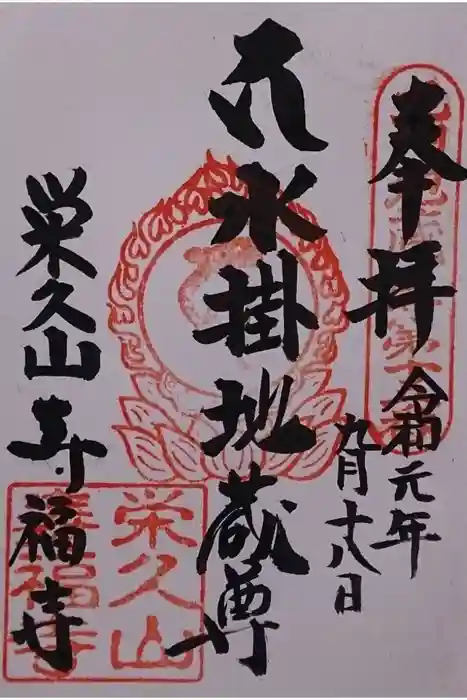 奉拝
令和元年
九月十八日
水掛地蔵尊
栄久山
寿福寺
栄久山
寿福寺